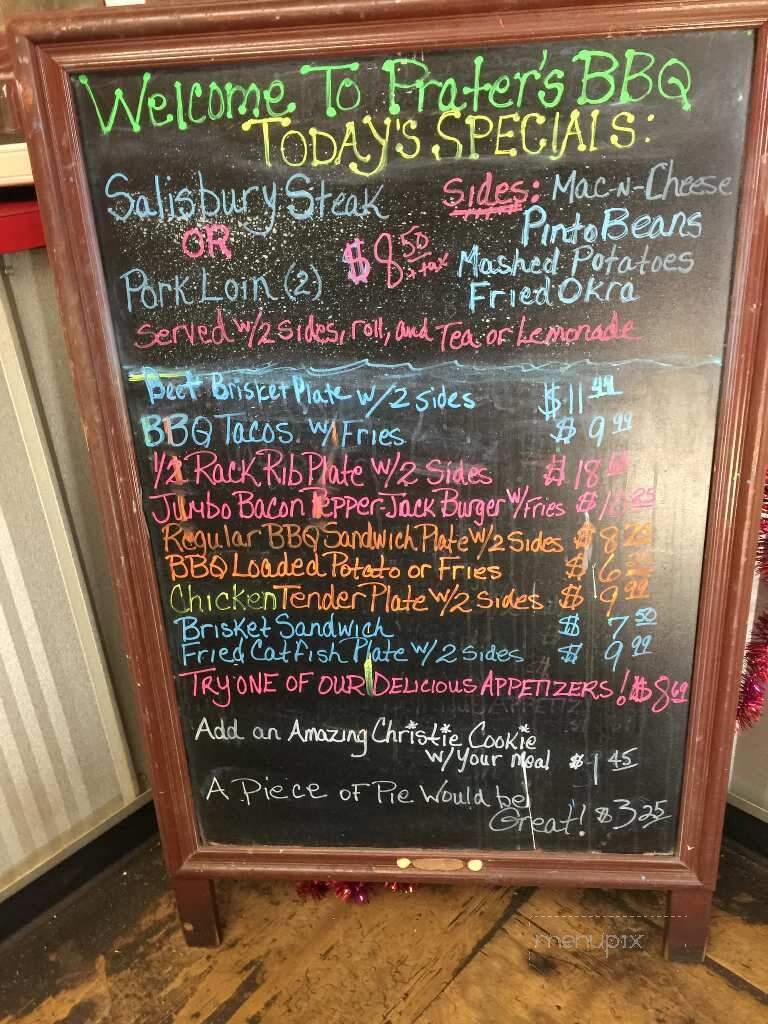 Welcome To Prater's BBQ
TODAY'S SPECIALS:
Salisbury Steak
OR
Pork Loin (2)
$8.50 + tax
Sides: Mac-N-Cheese
Pinto Beans
Mashed Potatoes
Fried Okra
Served w/2 sides, roll, and Tea or Lemonade
Beef Brisket Plate w/2 sides $11.49
BBQ Tacos w/ Fries $9.99
1/2 Rack Rib Plate w/2 Sides $18
Jumbo Bacon Pepper-Jack Burger w/Fries
Regular BBQ Sandwich Plate w/2 Sides $8
BBQ Loaded Potato or Fries $6
Chicken Tender Plate w/2 Sides $9.99
Brisket Sandwich $7.50
Fried Catfish Plate w/2 Sides $9.99
TRY ONE OF OUR DELICIOUS APPETIZERS! $8.69
Add an Amazing Christie Cookie
w/Your Meal $1.45
A Piece of Pie Would be
Great! $3.25
menupix